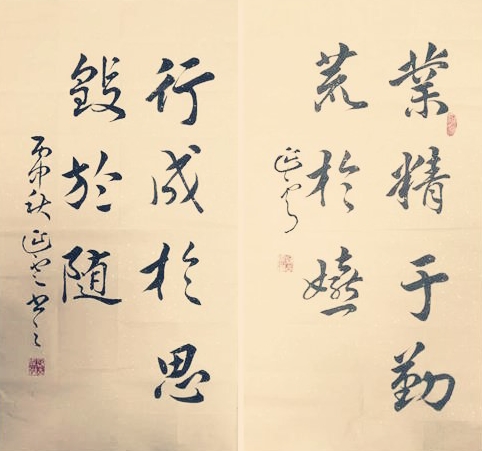 業精于勤
荒於嬉
行成於思
毀於随
丙申秋